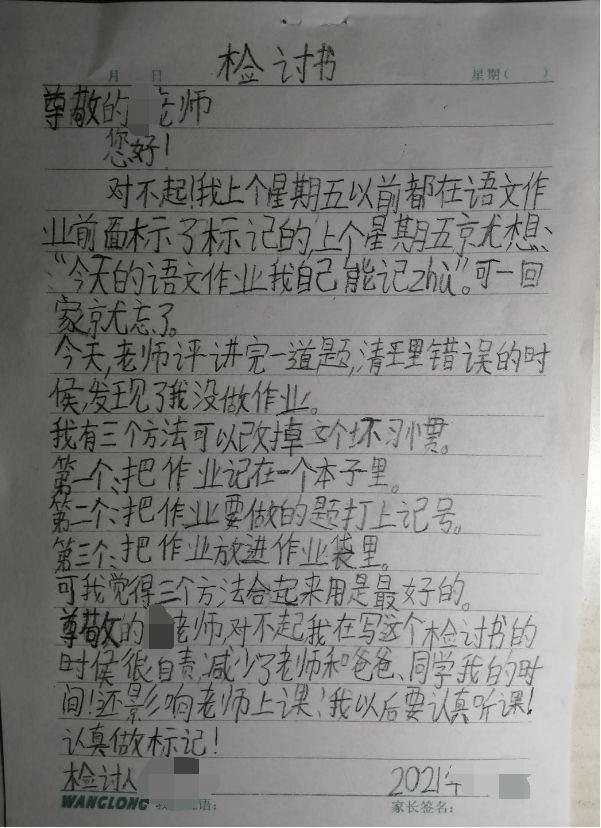 检讨书
月 日 星期( )
尊敬的 老师
您好!
对不起!我上个星期五以前都在语文作
业前面标示了标记的上个星期五京尤想、
“今天的语文作业我自己能记zhù”。可一回
家京尤忘了。
今天,老师评讲完一道题,清理错误的时
候,发现了我没做作业。
我有三个方法可以改掉这个坏习惯。
第一个、把作业记在一个本子里。
第二个、把作业要做的题打上记号。
第三个、把作业放进作业袋里。
可我觉得三个方法合起来用是最好的。
尊敬的 老师,对不起我在写这个检讨书的
时候很自责,减少了老师和爸爸、同学我的时
间!还影响老师上课!我以后要认真听课!
认真做标记!
检讨人 2021年
WANGLONG 语: 家长签名: